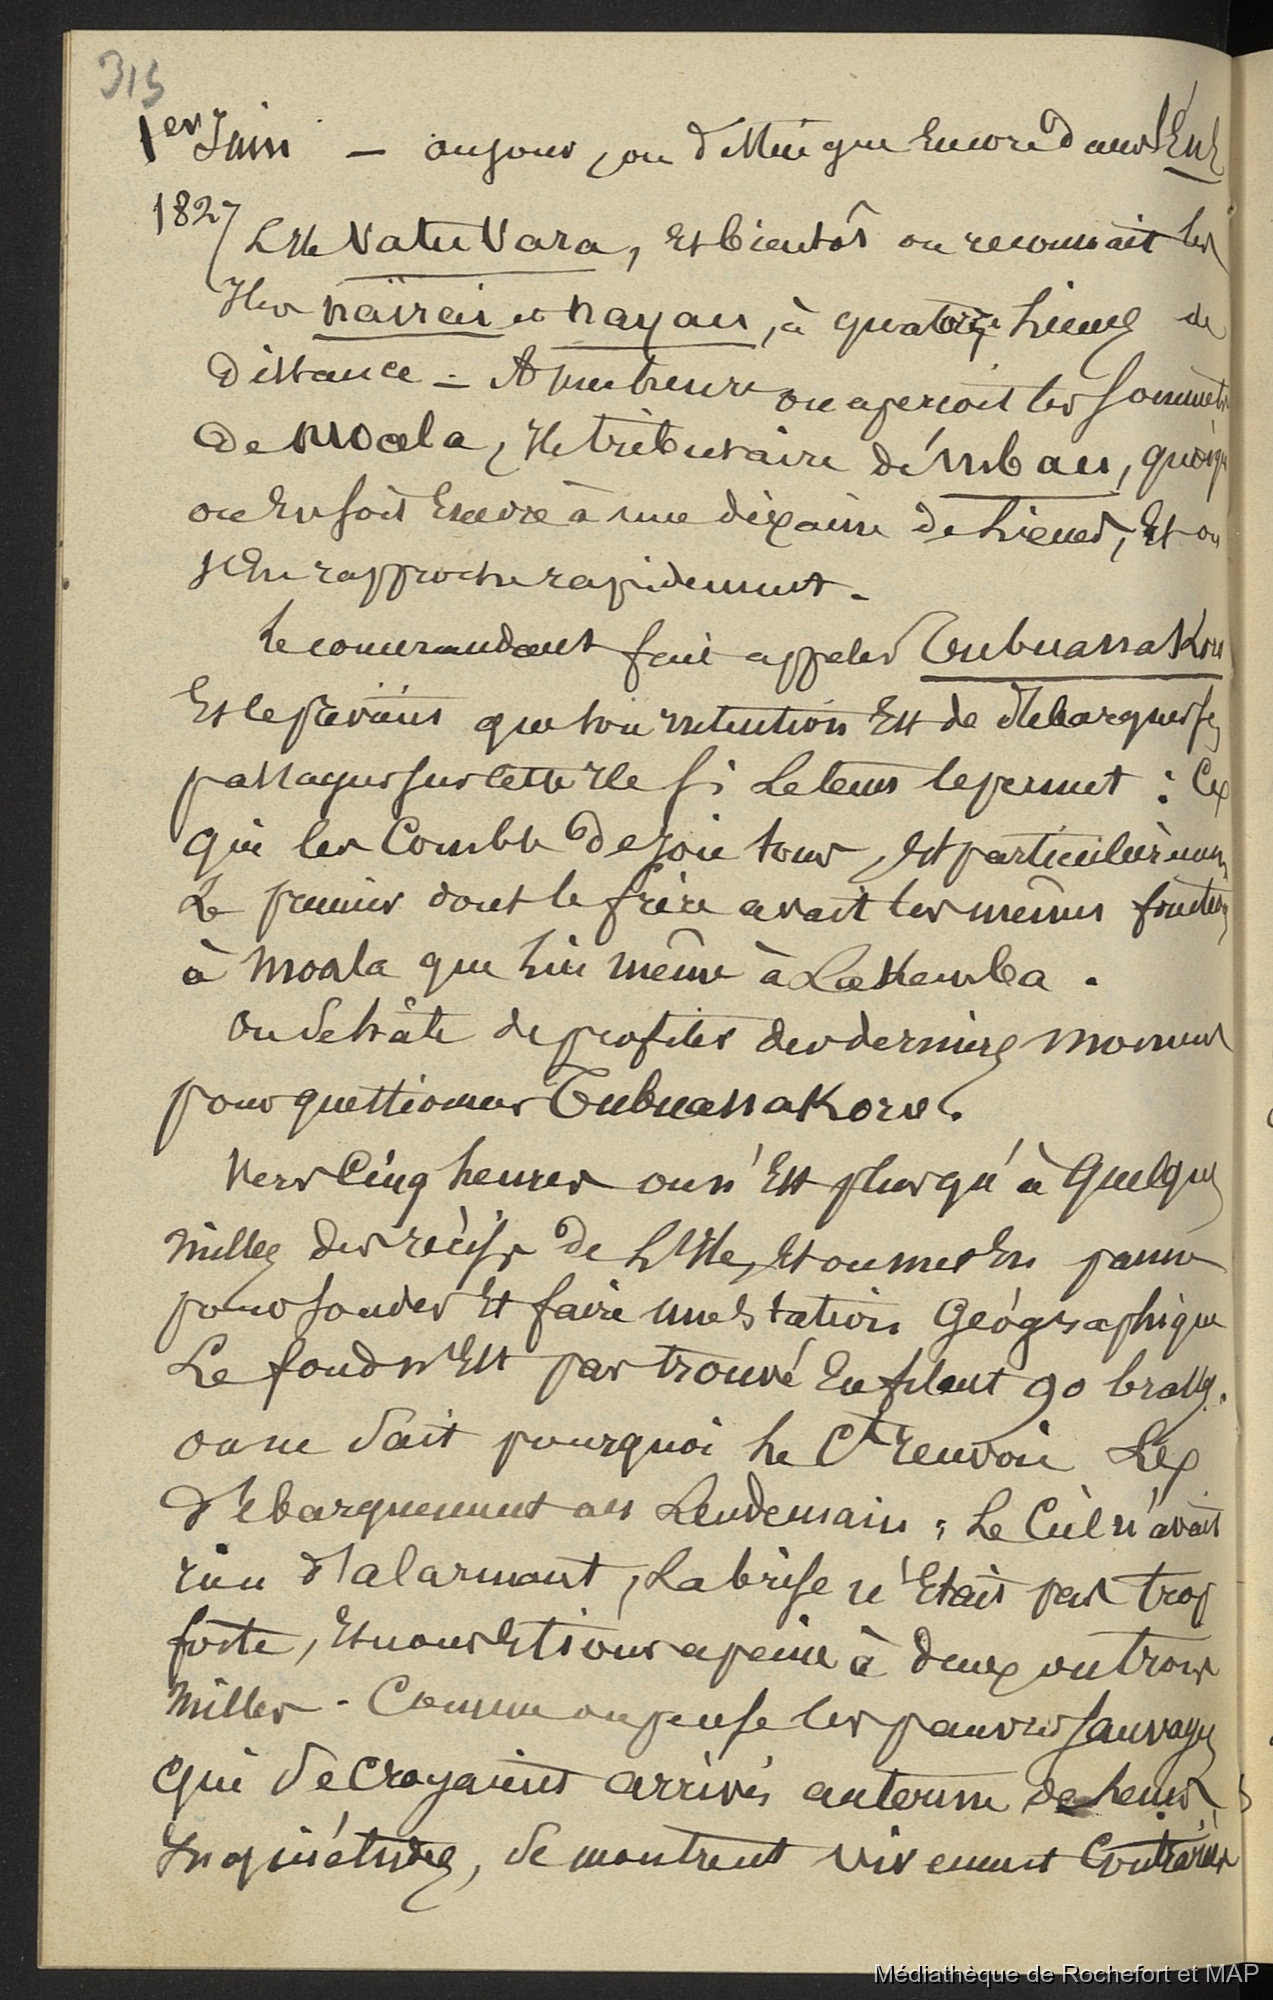 315
1er Juin — au jour, on distingue Encore dans L'Est
1827 L'Ile Vatu Vara, Et bientôt on reconnait les
Iles naïrai et nayau, à quatorze Lieues de
distance — A une heure on aperçoit les Sommets
de Moala, Ile tributaire d'Embau, quoiqu'
on En soit Encore à une dixaine de Lieues, Et on
s'En rapproche rapidement.
Le commandant fait appeler Tubuassakorou
Et le prévient que son intention Est de débarquer ses
passagers sur cette Ile si Le tems le permet : Ce
qui les Comble de joie tous, Et particulièrement
Le premier dont le frère avait les mêmes fonctions
à Moala que Lui même à Lakemba.
On se hâte de profiter des derniers moments
pour questionner Tubuassakorou.
Vers Cinq heures on n'Est plus qu'à Quelques
milles des récifs de L'Ile, Et on met En panne
pour sonder Et faire une Station Géographique
Le fond n'Est pas trouvé En filant 90 brasses.
on ne sait pourquoi Le Ct renvoie Le
débarquement au Lendemain ; Le Ciel n'avait
rien d'alarmant, La brise n'Etait pas trop
forte, Et nous Etions a peine à deux ou trois
milles. Comme on pense les pauvres sauvages
qui se Croyaient arrivés au terme de Leurs
Inquiétudes, se montrent vivement Contrariés
Médiathèque de Rochefort et MAP